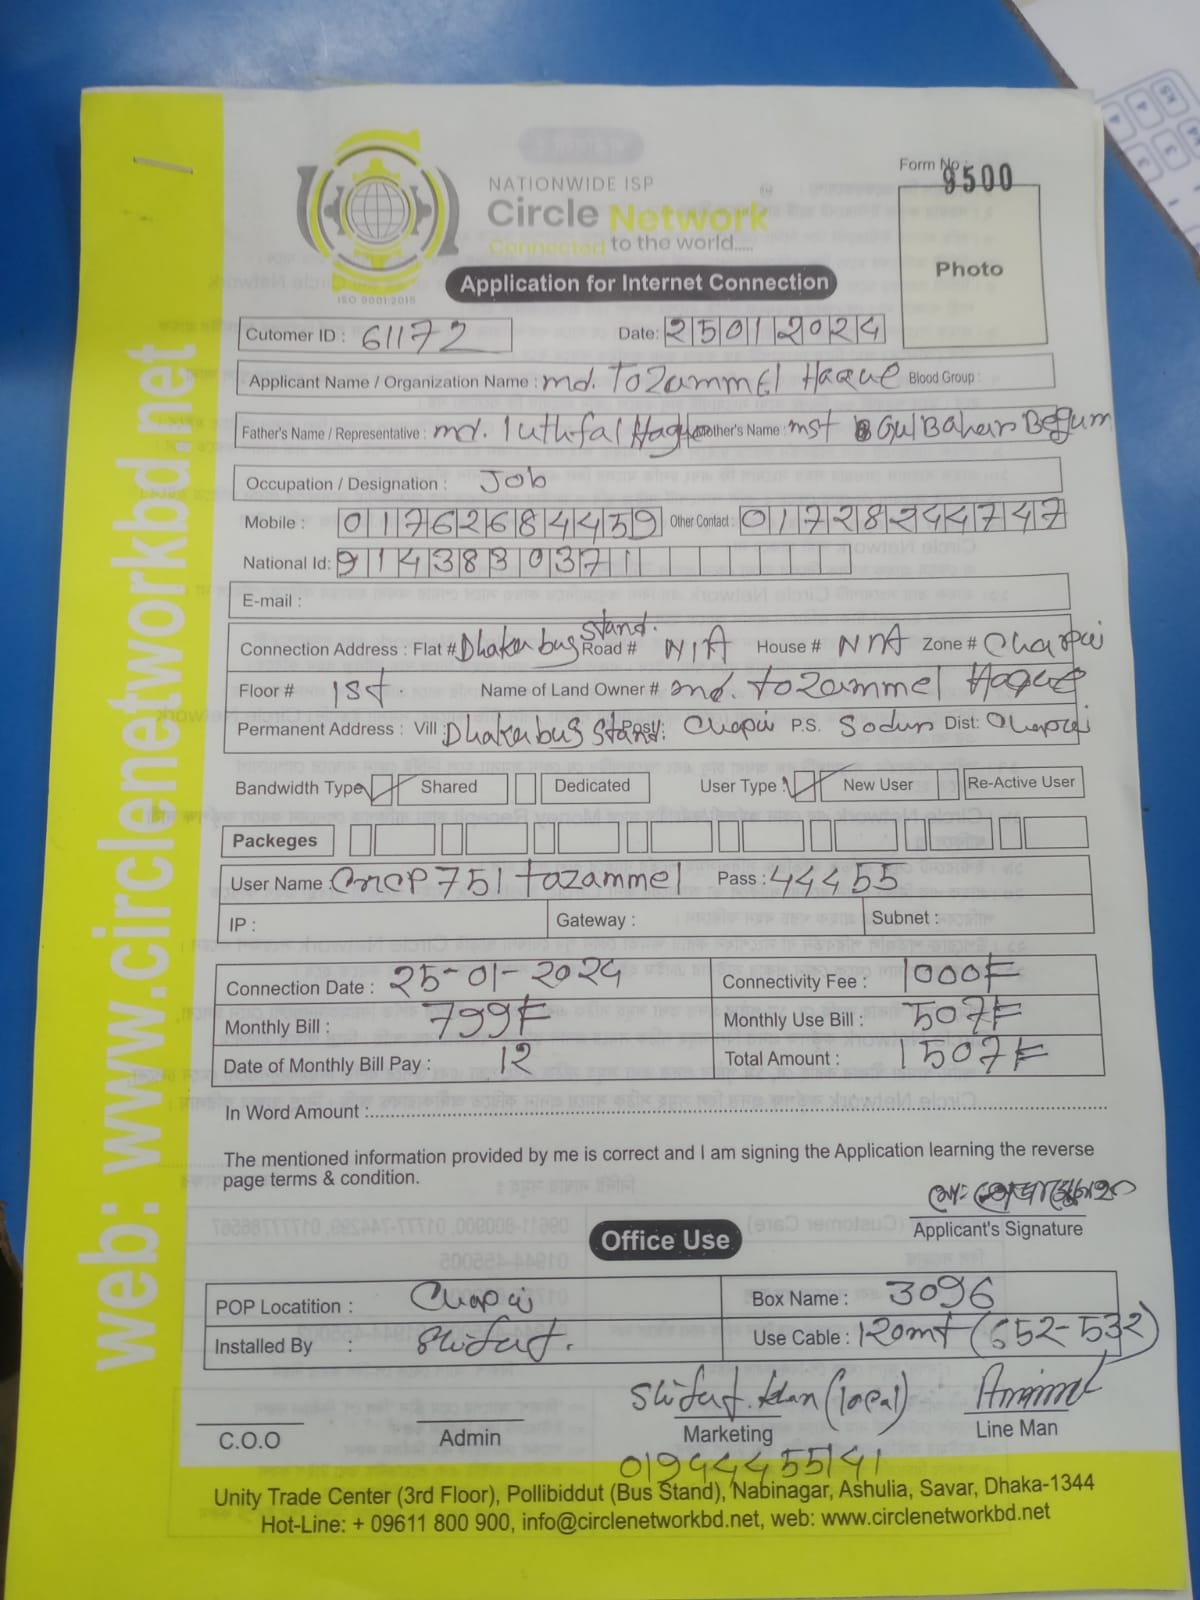 Form No : 9500
NATIONWIDE ISP
Circle Network
Connected to the world.....
ISO 9001:2015
Photo
Application for Internet Connection
Cutomer ID : 61172 Date: 25012024
Applicant Name / Organization Name : md. Tozammel Haque Blood Group :
Father's Name / Representative : md. luthfal Haque Mother's Name : mst Gul Bahar Begum
Occupation / Designation : Job
Mobile : 01762684459 Other Contact : 01728244747
National Id: 9143830371
E-mail :
Connection Address : Flat # Dhaka bus stand. Road # N/A House # N/A Zone # Chapai
Floor # 1st. Name of Land Owner # md. tozammel Haque
Permanent Address : Vill : Dhaka bus stand Post/: Chapai P.S. Sodur Dist: Chapai
Bandwidth Type Shared Dedicated User Type : New User Re-Active User
Packeges
User Name : cncp751tozammel Pass : 44455
IP : Gateway : Subnet :
Connection Date : 25-01-2024 Connectivity Fee : 1000F
Monthly Bill : 799F Monthly Use Bill : 507F
Date of Monthly Bill Pay : 12 Total Amount : 1507F
In Word Amount :
The mentioned information provided by me is correct and I am signing the Application learning the reverse
page terms & condition.
Applicant's Signature
Office Use
POP Locatition : Chapai Box Name : 3096
Installed By : Shifat. Use Cable : 120mt (652-532)
Shifat khan (local)
C.O.O Admin Marketing Line Man
01944455141
Unity Trade Center (3rd Floor), Pollibiddut (Bus Stand), Nabinagar, Ashulia, Savar, Dhaka-1344
Hot-Line: + 09611 800 900, info@circlenetworkbd.net, web: www.circlenetworkbd.net
web: www.circlenetworkbd.net